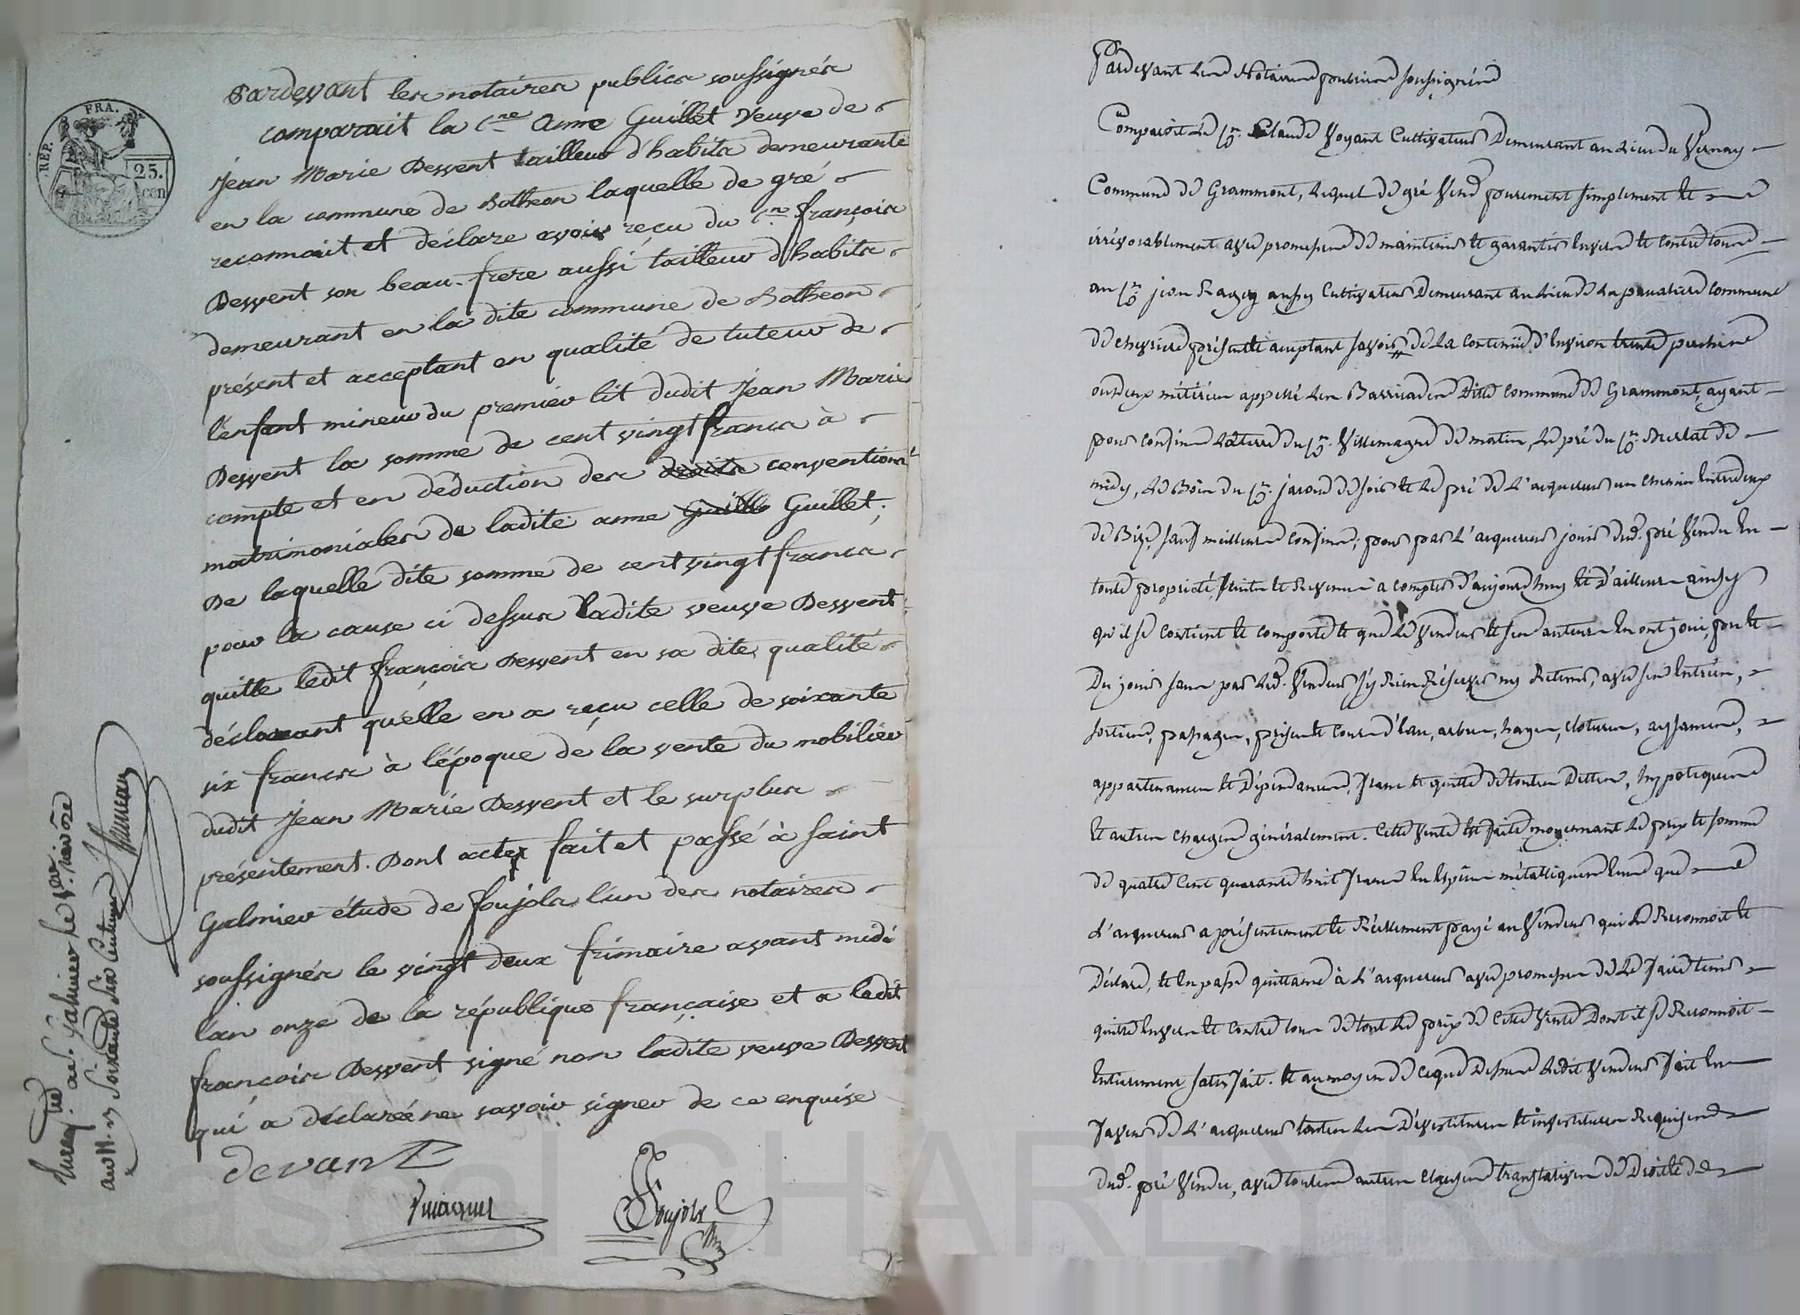 REP. FRA.
25. cen
Pardevant les notaires publics soussignés
comparait la Cne Anne Guillet Veuve de
Jean Marie Dessent tailleur d'habits demeurante
en la commune de Botheon laquelle de gré
reconnait et déclare avoir reçu du Cn françois
Dessent son beau-frere aussi tailleur d'habits
demeurant en la dite commune de Botheon
présent et acceptant en qualité de tuteur de
l'enfant mineur du premier lit dudit Jean Marie
Dessent la somme de cent vingt francs à
compte et en déduction des conventions
matrimoniales de ladite anne Guillet;
De laquelle dite somme de cent vingt francs
pour la cause ci dessus ladite veuve Dessent
quitte ledit françois Dessent en sa dite qualité
déclarant qu'elle en a reçu celle de soixante
six francs à l'époque de la vente du mobilier
dudit Jean Marie Dessent et le surplus
présentement. Dont acte fait et passé à Saint
Galmier étude de foujols l'un des notaires
soussignés le vingt deux frimaire avant midi
l'an onze de la république française et a ledit
françois Dessent signé non ladite veuve Dessent
qui a déclarée ne savoir signer de ce enquise
devant
foujols
Pardevant les Notaires soussignés
Comparoit le Cn. Claude Voyant Cultivateur Demeurant au lieu du Vernay
Commune de Grammont, lequel de gré vend purement simplement et
irrévocablement avec promesse de maintenir et garantir envers et contre tous
au Cn jean Ragey aussy Cultivateur Demeurant au lieu de commune
de chevrieres présent et acceptant savoir de la contenüe d'environ trente perches
ou deux métérées appellé les Barricades dite commune de Grammont, ayant
pour confins la terre du Cn. Villemagne de matin, le pré du Cn de
midy, le Bois du Cn. jacond de soir et le pré de l'acquereur un chemin entredeux
de Bize, sauf meilleurs confins; pour par l'acquereur jouir dud. pré vendu en
toute propriété, fruits et revenus à compter d'aujourd'huy et d'ailleurs ainsy
qu'il se contient et comporte et que le vendeur et ses auteurs en ont joui, pu et
Du jouir sans par led. vendeur s'y rien réserver ny retenir, avec ses entrées,
sorties, passages, prises et cours d'eau, arbres, hayes, clotures, aysances,
appartenances et dépendances, franc et quitte de toutes dettes, hypoteques
et autres charges généralement. Cette vente est faite moyennant le prix et somme
de quatre cent quarante huit francs en espèces métalliques que
l'acquereur a présentement et réellement payé au vendeur qui le reconnoit et
Déclare, et en passe quittance à l'acquereur avec promesse de le faire tenir
quitte envers et contre tous de tout le prix de cette vente dont il se reconnoit
entierement satisfait. et au moyen de ce que dessus ledit vendeur fait en
faveur de l'acquereur toutes les dévestitures et investitures requises
dud. pré vendu, avec toutes autres clauses translatives de droit et de